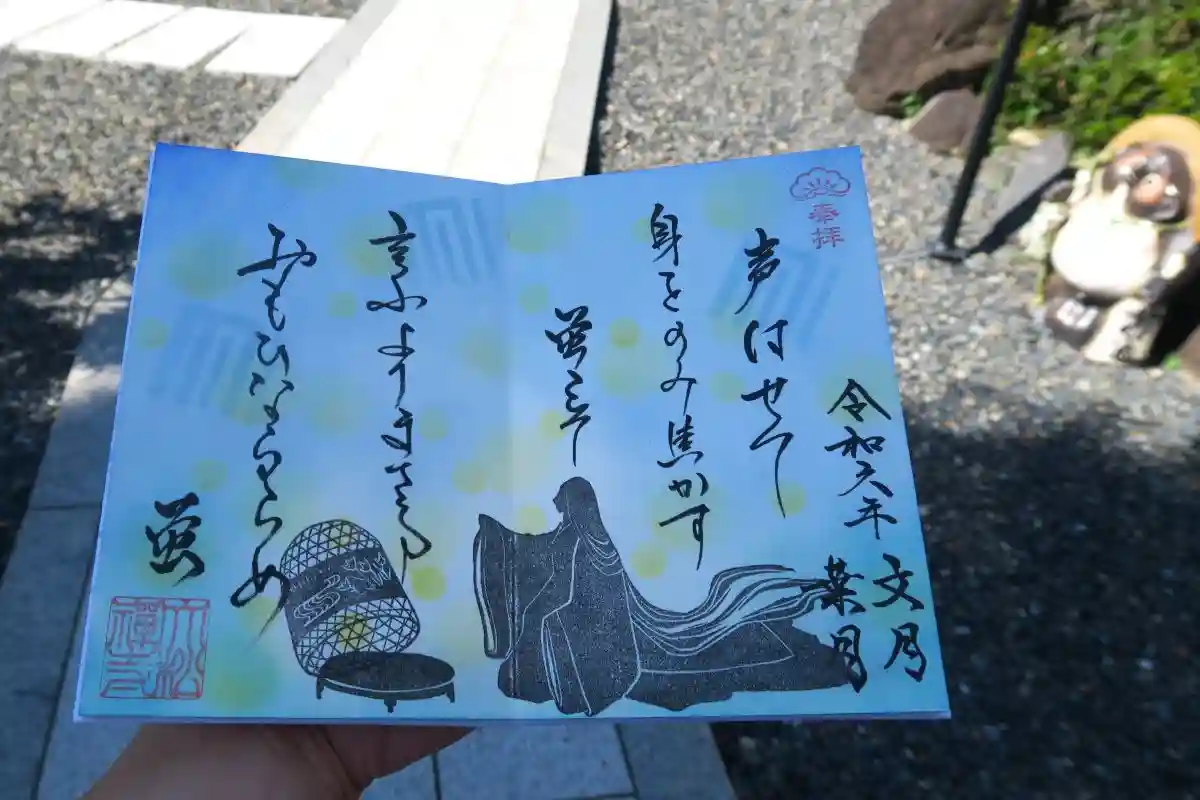 奉拝
令和六年
文月
葉月
声はせて
身をのみ焦かす
蛍こそ
言ふよりまさる
おもひなるらめ
蛍